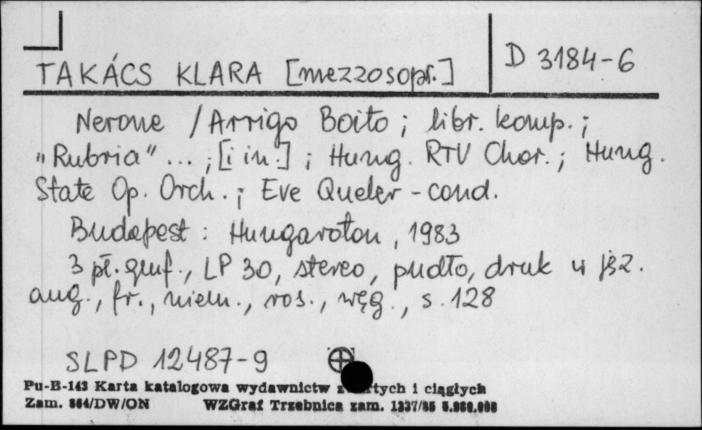 TAKÁCS KLARA [mezzosopr.] D 3184-6
Nerone / Arrigo Boito ; libr. komp. ;
"Rubria" ... ; [i in.] ; Hung. RTV Chor. ; Hung.
State Op. Orch. ; Eve Queler - cond.
Budapest : Hungaroton, 1983
3 pł. gmf., LP 30, stereo, pudło, druk w jęz.
ang., fr., niem., ros., węg., s. 128
SLPD 12487-9
Pu-B-143 Karta katalogowa wydawnictw z rtych i ciągłych
Zam. 864/DW/ON WZGraf Trzebnica zam. 1337/85